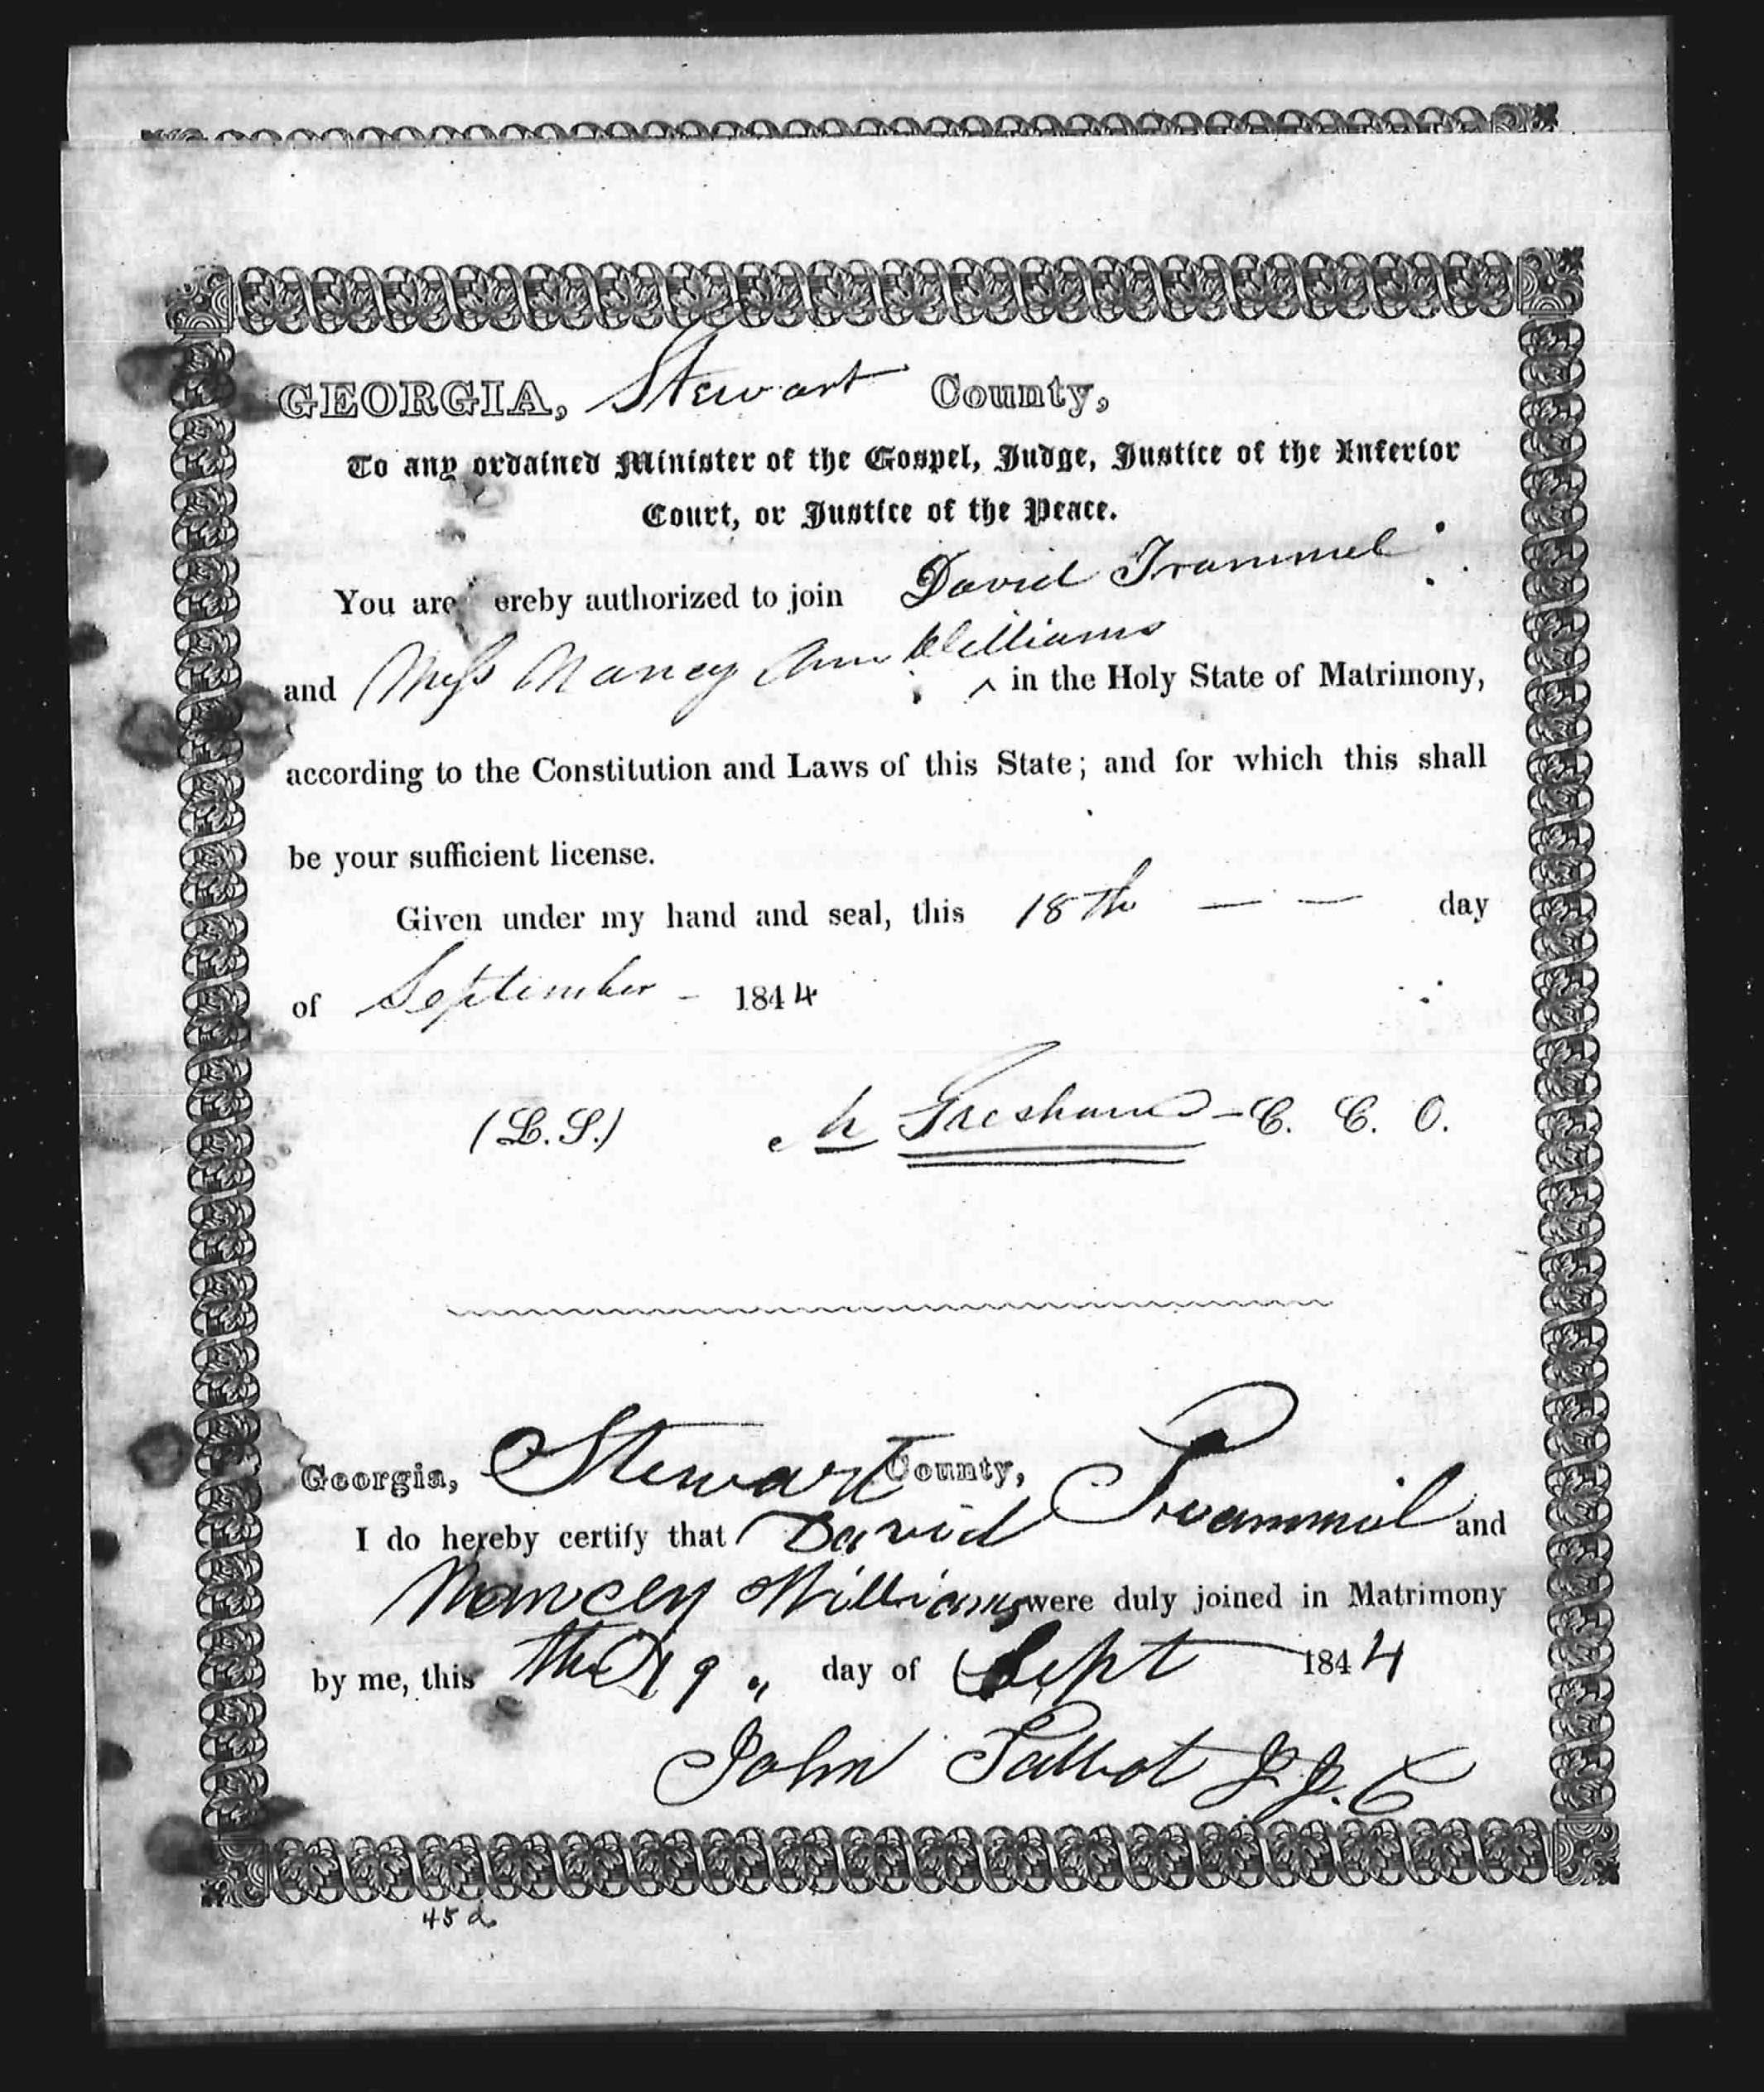 GEORGIA, Stewart County,
To any ordained Minister of the Gospel, Judge, Justice of the Inferior
Court, or Justice of the Peace.
You are ereby authorized to join David Trammel
and Miss Nancy Ann Williams ^ in the Holy State of Matrimony,
according to the Constitution and Laws of this State; and for which this shall
be your sufficient license.
Given under my hand and seal, this 18th — — day
of September - 1844
(L.S.) M Gresham - C. C. O.
Georgia, Stewart County,
I do hereby certify that David Trammil and
Nancey Williams were duly joined in Matrimony
by me, this the 19 " day of Sept 1844
John Talbot J. J. C
45 d